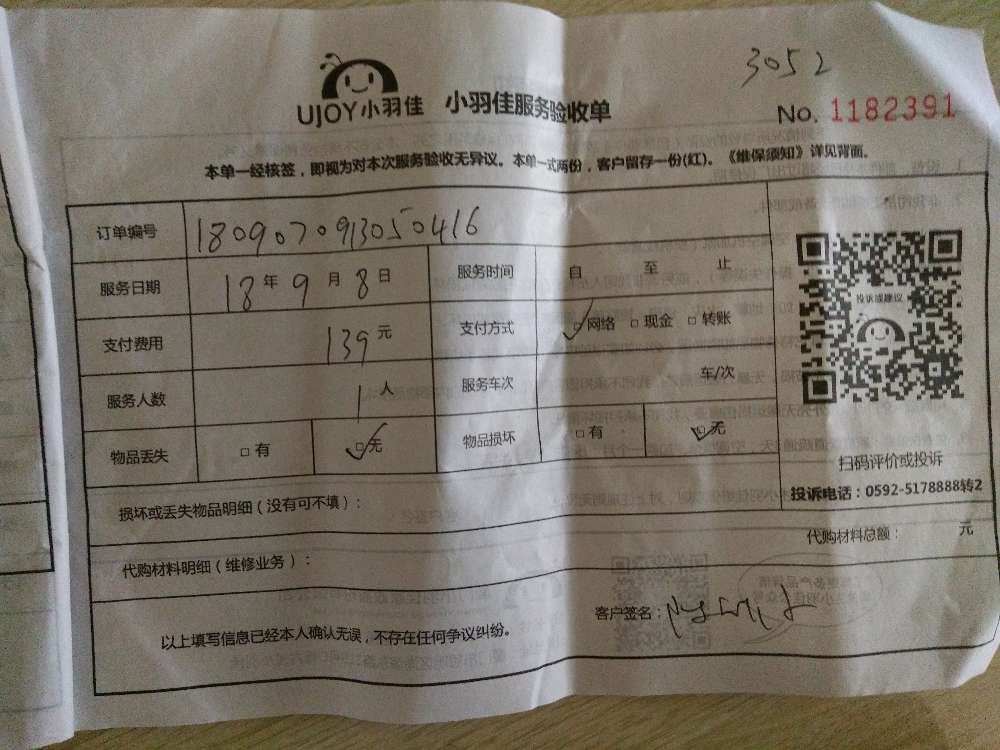 3052
UJOY小羽佳 小羽佳服务验收单
No. 1182391
本单一经核签，即视为对本次服务验收无异议。本单一式两份，客户留存一份(红)。《维保须知》详见背面。
订单编号 180907091305​0416
服务日期 18年9月8日 服务时间 自 至 止
支付费用 139元 支付方式 □网络 □现金 □转账
服务人数 1人 服务车次 车/次
物品丢失 □有 □无 物品损坏 □有 □无
投诉或建议
扫码评价或投诉
投诉电话：0592-5178888转2
损坏或丢失物品明细（没有可不填）：
代购材料明细（维修业务）： 代购材料总额： 元
以上填写信息已经本人确认无误，不存在任何争议纠纷。 客户签名：